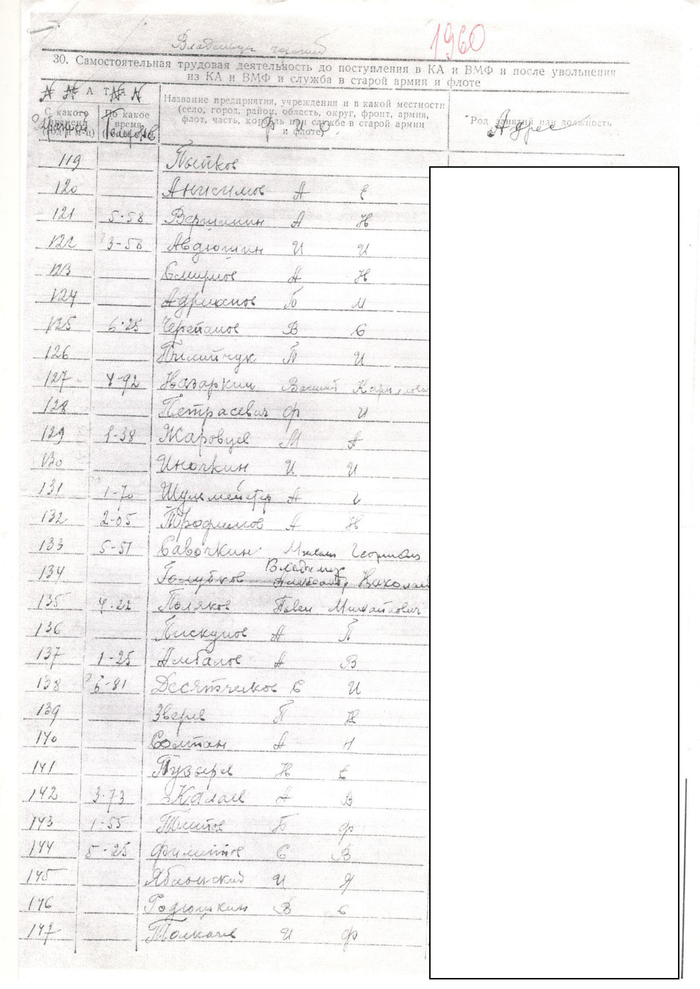 Владимир
1960
30. Самостоятельная трудовая деятельность до поступления в КА и ВМФ и после увольнения
из КА и ВМФ и служба в старой армии и флоте
Д А Т А
С какого времени
По какое время
Название предприятия, учреждения и в какой местности
(село, город, район, область, округ, фронт, армия,
флот, часть, корабль при службе в старой армии
и флоте)
Ф И О
Род занятий или должность
Адрес
119 Пытков
120 Анисимов А С
121 5-58 Вершинин А Н
122 3-58 Авдюшин И И
123 Смирнов А Н
124 Адрианов Б М
125 6-25 Черепанов В С
126 Пилипчук П И
127 4-92 Назаркин Василий
128 Петрасевич Ф И
129 1-38 Жаровцев М А
130 Иночкин И И
131 1-70 Шульмейстер А
132 2-05 Трофимов А Н
133 5-51 Савочкин Михаил
134 Голубков Владимир Александр Николаев
135 4-22 Поляков Павел Михайлович
136 Пискунов А П
137 1-25 Алтбалов А В
138 5-81 Десятчиков С И
139 Зверев П Н
140 Солтан А
141 Пузырев Н С
142 3-73 А В
143 1-55 Титов Б Ф
144 5-25 Филиппов С В
145 Яблонский И Я
146 Родюшкин В С
147 Толкачев И Ф